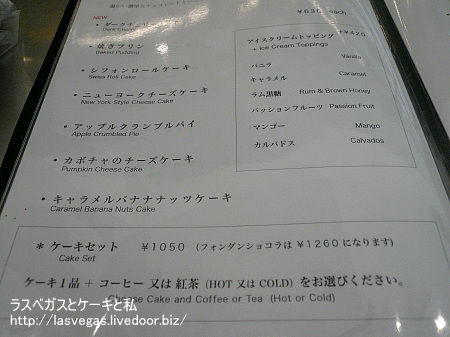 NEW
・焼きプリン
Baked Pudding
・シフォンロールケーキ
Swiss Roll Cake
・ニューヨークチーズケーキ
New York Style Cheese Cake
・アップルクランブルパイ
Apple Crumbled Pie
・カボチャのチーズケーキ
Pumpkin Cheese Cake
・キャラメルバナナナッツケーキ
Caramel Banana Nuts Cake
¥630 each
アイスクリームトッピング +¥420
+ Ice Cream Toppings
バニラ Vanilla
キャラメル Caramel
ラム黒糖 Rum & Brown Honey
パッションフルーツ Passion Fruit
マンゴー Mango
カルバドス Calvados
* ケーキセット ¥1050 (フォンダンショコラは ¥1260 になります)
Cake Set
ケーキ1品 + コーヒー 又は 紅茶 (HOT 又は COLD) をお選びください。
Cheese Cake and Coffee or Tea (Hot or Cold)
ラスベガスとケーキと私
http://lasvegas.livedoor.biz/